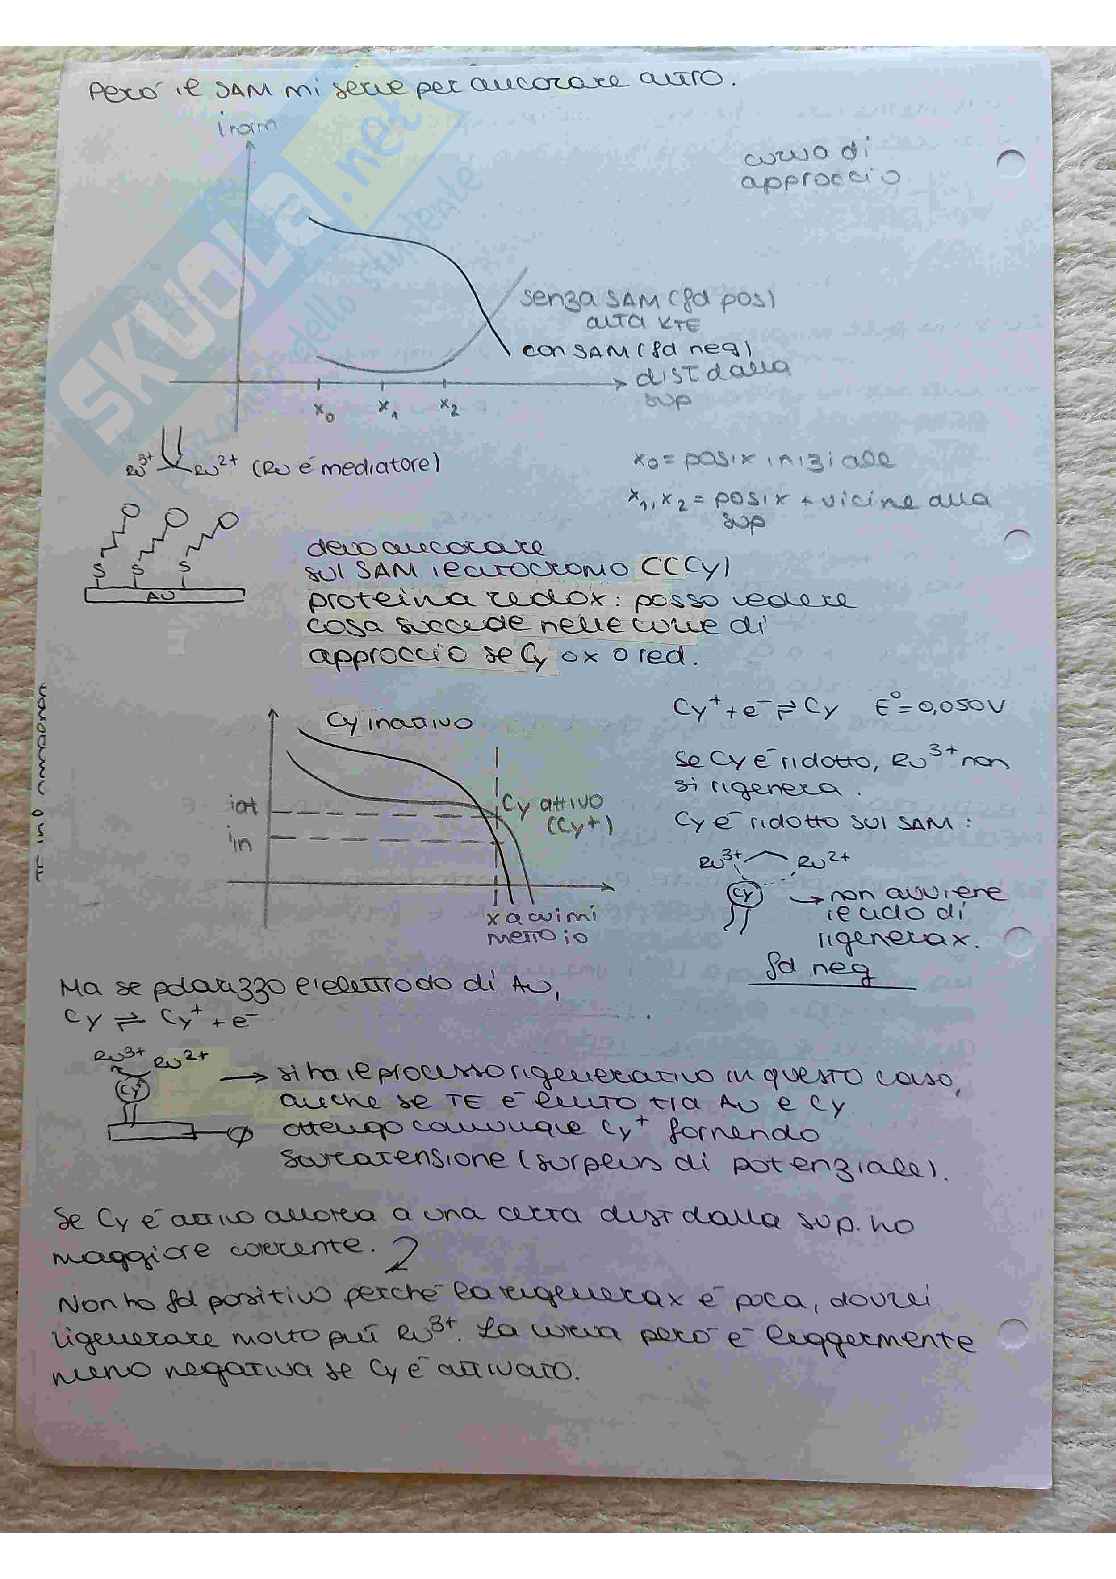 Però il SAM mi serve per ancorare altro.
inorm
curva di
approccio
senza SAM (fd pos)
alta KTE
con SAM (fd neg)
dist dalla
sup
x0 x1 x2
Ru3+ Ru2+ (Ru è mediatore)
x0 = posix iniziale
x1, x2 = posix + vicine alla
sup
S S S
Au
devo ancorare
sul SAM il citocromo C (Cy)
proteina redox: posso vedere
cosa succede nelle curve di
approccio se Cy ox o red.
Cy inattivo
Cy+ + e- ⇌ Cy E° = 0,050V
Se Cy è ridotto, Ru3+ non
si rigenera.
iat
Cy attivo
(Cy+)
in
Cy è ridotto sul SAM:
Ru3+ Ru2+
Cy
→ non avviene
il ciclo di
rigenerax.
fd neg
x a cui mi
metto io
Ma se polarizzo l'elettrodo di Au,
Cy ⇌ Cy+ + e-
Ru3+ Ru2+
Cy
→ si ha il processo rigenerativo in questo caso,
anche se TE è lento tra Au e Cy
ottengo comunque Cy+ fornendo
sovratensione (surplus di potenziale).
Se Cy è attivo allora a una certa dist dalla sup. ho
maggiore corrente. 2
Non ho fd positivo perché la rigenerax è poca, dovrei
rigenerare molto più Ru3+. La curva però è leggermente
meno negativa se Cy è attivato.
SKUOLA.net
dello studente